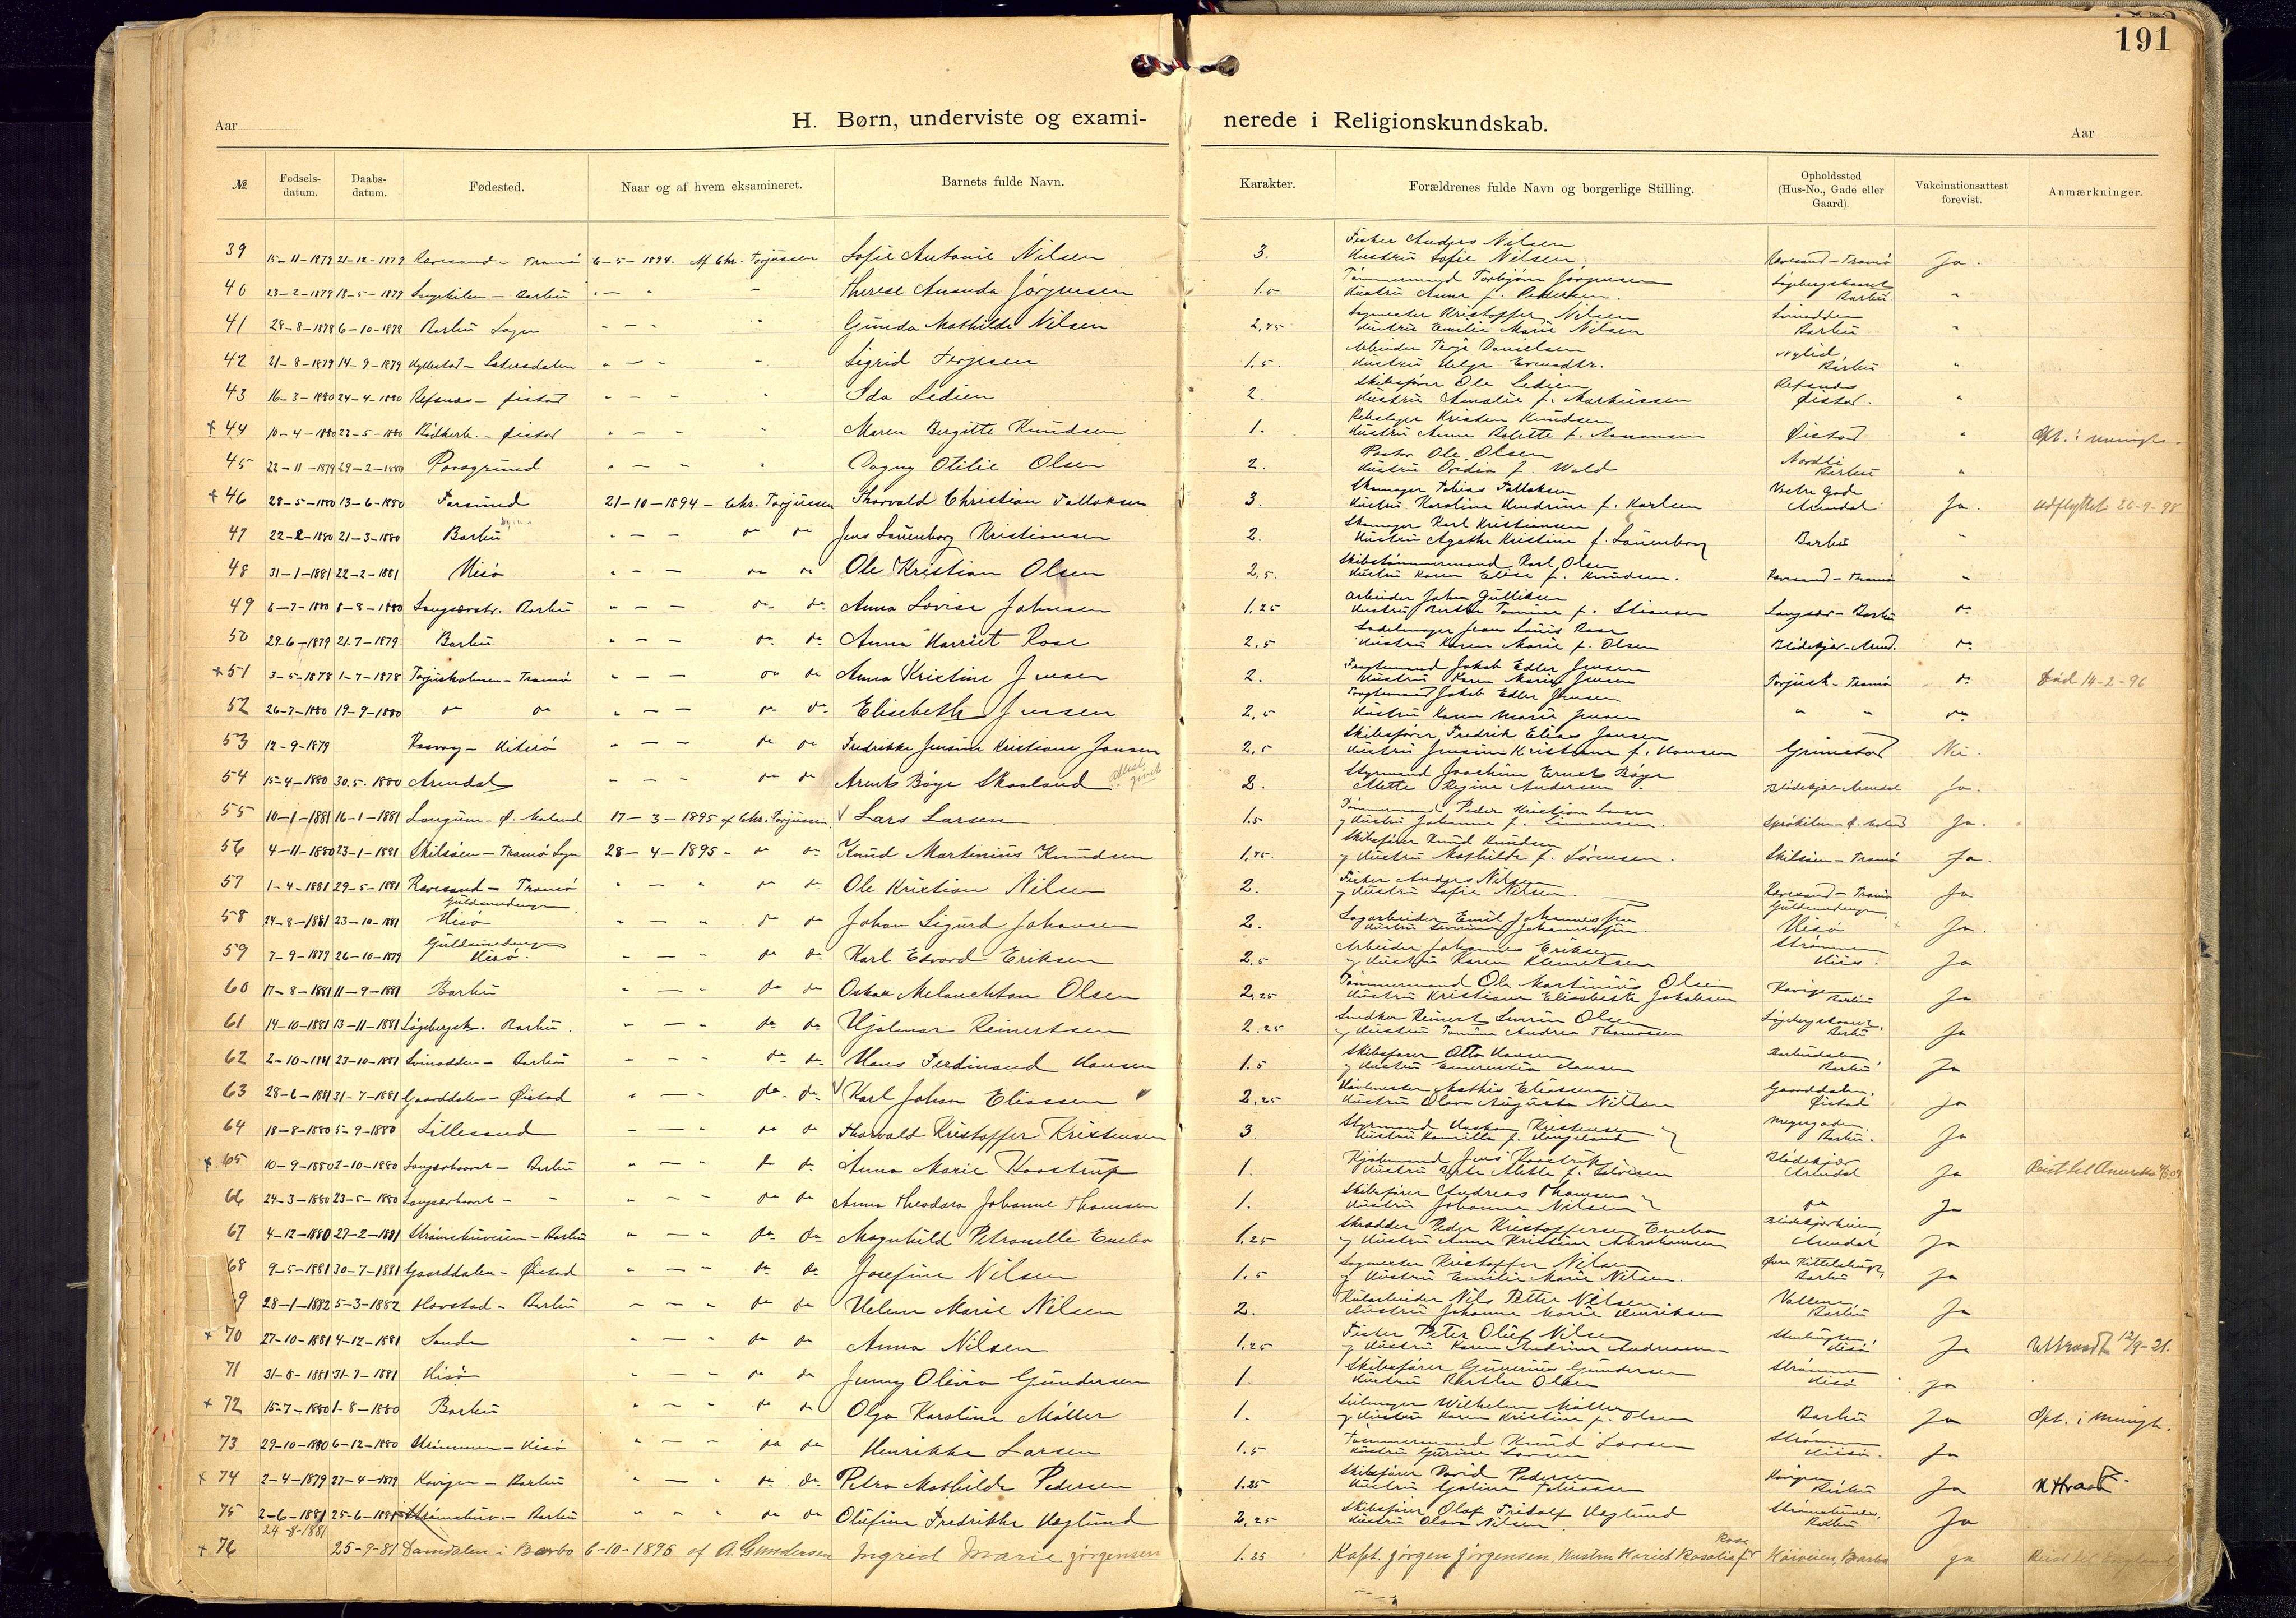 191
Aar
H. Børn, underviste og exami-
nerede i Religionskundskab.
Aar
№ Fødsels-datum. Daabs-datum. Fødested. Naar og af hvem eksamineret. Barnets fulde Navn. Karakter. Forældrenes fulde Navn og borgerlige Stilling. Opholdssted (Hus-No., Gade eller Gaard). Vakcinationsattest forevist. Anmærkninger.
39 15-11-1879 21-12-1879 Revesand - Tromø 6-5-1894. Af Chr. Torjussen Sofie Antonie Nilsen 3. Fisker Anders Nilsen Hustru Sofie Nilsen. Revesand - Tromø Ja.
40 23-2-1879 18-5-1879 - Barbu Therese Amanda Jörgensen 1.5 Tömmermand Torbjörn Jörgensen Hustru Anne f. Pedersen. Barbu "
41 28-8-1878 6-10-1878 Barbu Sogn Gunda Mathilde Nilsen 2,75 Sagmester Kristoffer Nilsen Hustru Emilie Marie Nilsen Barbu "
42 21-8-1879 14-9-1879 Hyllestad - Sætersdalen Sigrid Terjesen 1.5. Arbeider Terje Danielsen Hustru Helge Barbu "
43 16-3-1880 24-4-1880 Refsnæs - Øistad Ida Ledien 2. Skibsfører Ole Ledien Hustru Amalie f. Markussen Refsnæs Øistad. "
× 44 10-4-1880 - Øistad Maren Bergitte Knudsen 1. Kristen Knudsen Hustru Anne f. Aanonsen Øistad " Opt. i menigh.
45 22-11-1879 29-2-1880 Porsgrund Dagny Otilie Olsen 2. Pastor Ole Olsen Hustru Ovidia f. Wold Nordli Barbu "
× 46 28-5-1880 13-6-1880 Farsund 21-10-1894 - Chr. Torjussen Thorvald Christian Tallaksen 3. Skomager Tobias Tallaksen Hustru Karoline Hendrine f. Karlsen Vestre Gade Arendal Ja. Udflyttet
47 22-2-1880 21-3-1880 Barbu do do Jens Lauenborg Kristiansen 2. Skomager Karl Kristiansen Hustru Agathe Kristine f. Lauenborg Barbu "
48 31-1-1881 22-2-1881 Hisø do do Ole Kristian Olsen 2,5. Skibstømmermand Karl Olsen Hustru Karen Elise f. Knudsen. Revesand - Tromø "
49 6-7-1880 8-8-1880 Barbu do do Anna Lovise Johnsen 1.25 Arbeider John Gulliksen Hustru Berthe Tomine f. Stiansen Langsæv - Barbu do
50 29-6-1879 21-7-1879 Barbu do do Anna Harriet Rose 2,5 Sadelmager Jean Louis Rose Hustru Karen Marie f. Olsen Blødekjær - Arend. do
× 51 3-5-1878 1-7-1878 Torjusholmen - Tromø do do Anna Kristine Jensen 2. Fragtemand Jakob Edler Jensen Hustru Karen Marie Jensen Torjush. - Tromø do Død 14-2-96
52 26-7-1880 19-9-1880 do do do do Elisebeth Jensen 2,5 Fragtemand Jakob Edler Jensen Hustru Karen Marie Jensen " " do
53 12-9-1879 Rasvag - Hiterø do do Fredrikke Jensine Kristiane Jansen 2,5 Skibsfører Fredrik Elias Jansen Hustru Jensine Kristiane f. Hansen Grimstad Nei.
54 15-4-1880 30.5.1880 Arendal do do Arents Bøye Skaaland 2. Styrmand Joachim Ernst Bøye Mette Regine Andersen Blødekjær - Arendal Ja.
55 10-1-1881 16-1-1881 Longum - Ø. Moland 17-3-1895 af Chr. Torjussen. √ Lars Larsen 1.5 Tömmermand Peder Kristian Larsen og Hustru Johanne f. Simonsen. Ja.
56 4-11-1880 23-1-1881 Skilsøen - Tromø Sogn 28-4-1895 - do do Knud Martinius Knudsen 1,75. Skibsfører Knud Knudsen og Hustru Mathilde f. Sørensen. Skilsøen - Tromø Ja.
57 1-4-1881 29-5-1881 Revesand - Tromø do do Ole Kristian Nilsen 2. Fisker Anders Nilsen og Hustru Sofie Nilsen. Revesand - Tromø Ja
58 24-8-1881 23-10-1881 Guldsmedengen Hisø do do Johan Sigurd Johansen 2. Sagarbeider Emil Johannessen Guldsmedengen Hisø Ja.
59 7-9-1879 26-10-1879 Guldsmedengen Hisø. do do Karl Edvard Eriksen 2,5 Arbeider Johannes Eriksen og Hustru Karen Klemetsen Strømmen Hisø. Ja
60 17-8-1881 11-9-1881 Barbu do do Oskar Melanchton Olsen 2,25 Tømmermand Ole Martinius Olsen Hustru Kristiane Elisebeth Jakobsen Kavigen Barbu Ja
61 14-10-1881 13-11-1881 Barbu. do do Hjalmar Reinertsen 2.25 Snedker Reinert Olsen og Hustru Tomine Andrea Thomassen Barbu Ja
62 2-10-1881 23-10-1881 - Barbu do do Hans Ferdinand Hansen 1.5 Skibsfører Otto Hansen og Hustru Emerentia Hansen Barbudalen Barbu Ja
63 28-6-1881 31-7-1881 Gaarddalen - Øistad do do √ Karl Johan Eliassen 2,25 Mathis Eliassen Hustru Olava Augusta Nilsen Gaarddalen. Øistad Ja
64 18-8-1880 5-9-1880 Lillesand do do Thorvald Kristoffer Kristensen 3. Styrmand Kristensen Hustru Kamilla f. Haugeland Barbu. Ja
× 65 10-9-1880 2-10-1880 - Barbu do do Anna Marie Kaastrup 1. Kjøbmand Jens Kaastrup Blødekjær Arendal Ja Reist til Amerika
66 24-3-1880 23-5-1880 do do Anna Theodora Johanne Thomsen 1. Skibsfører Andreas Thomsen Hustru Johanne Nilsen do Ja
67 4-12-1880 27-2-1881 Strømsbuveien - Barbu do do Magnhild Petronelle Enebo 1,25 Skrædder Peder Kristoffersen Enebo og Hustru Anne Kristine Abrahamsen Arendal Ja
68 9-5-1881 30-7-1881 Gaarddalen - Øistad do do Josefine Nilsen 1.5 Sagmester Kristoffer Nilsen og Hustru Emilie Marie Nilsen. Barbu Ja
9 28-1-1882 5-3-1882 Havstad - Barbu do do Helene Marie Nilsen 2. Nils Petter Nilsen Hustru Johanne Marie Henriksen Barbu Ja
× 70 27-10-1881 4-12-1881 Sande do do Anna Nilsen 1,25 Fisker Peter Oluf Nilsen og Hustru Karen Andrine Andreassen Hisø Ja Uttraadt 12/9-21.
71 31-7-1881 Hisø do do Jenny Olivia Gundersen 1. Skibsfører Gunerius Gundersen Hustru Berthe Olsen Strømmen Hisø Ja
× 72 15-7-1880 1-8-1880 Barbu do do Olga Karoline Møller 1. Seilmager Wilhelm Møller og Hustru Karen Kristine f. Olsen Barbu Ja Opt. i menigh.
73 29-10-1880 6-12-1880 Strømmen - Hisø do do Henrikke Larsen 1.5 Tømmermand Knud Larsen Hustru Gurine Larsen Strømmen Hisø. Ja
× 74 2-4-1879 27-4-1879 Kavigen - Barbu do do Petra Mathilde Pedersen 1.25 Skibsfører David Pedersen Kavigen Barbu Ja Uttraadt
75 2-6-1881 25-6-1881 - Barbu do do Olufine Fredrikke Haglund 2,25 Skibsfører Olaf Fridolf Haglund Hustru Olava Nilsen Barbu Ja
× 76 24-8-1881 25-9-81 Damdalen i Barbo 6-10-1895 af A. Gundersen Ingrid Marie Jörgensen 1.25 Kapt. Jörgen Jörgensen, Hustru Hariet Rosalia f. Rose Høiveien, Barbu ja Reist til England